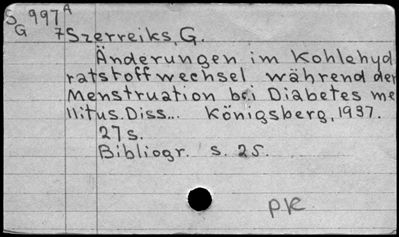 S 997A
G 7 Szerreiks, G.
Änderungen im Kohlehyd
ratstoffwechsel während der
Menstruation bei Diabetes me
llitus. Diss... Königsberg, 1937.
27s.
Bibliogr. s. 25.